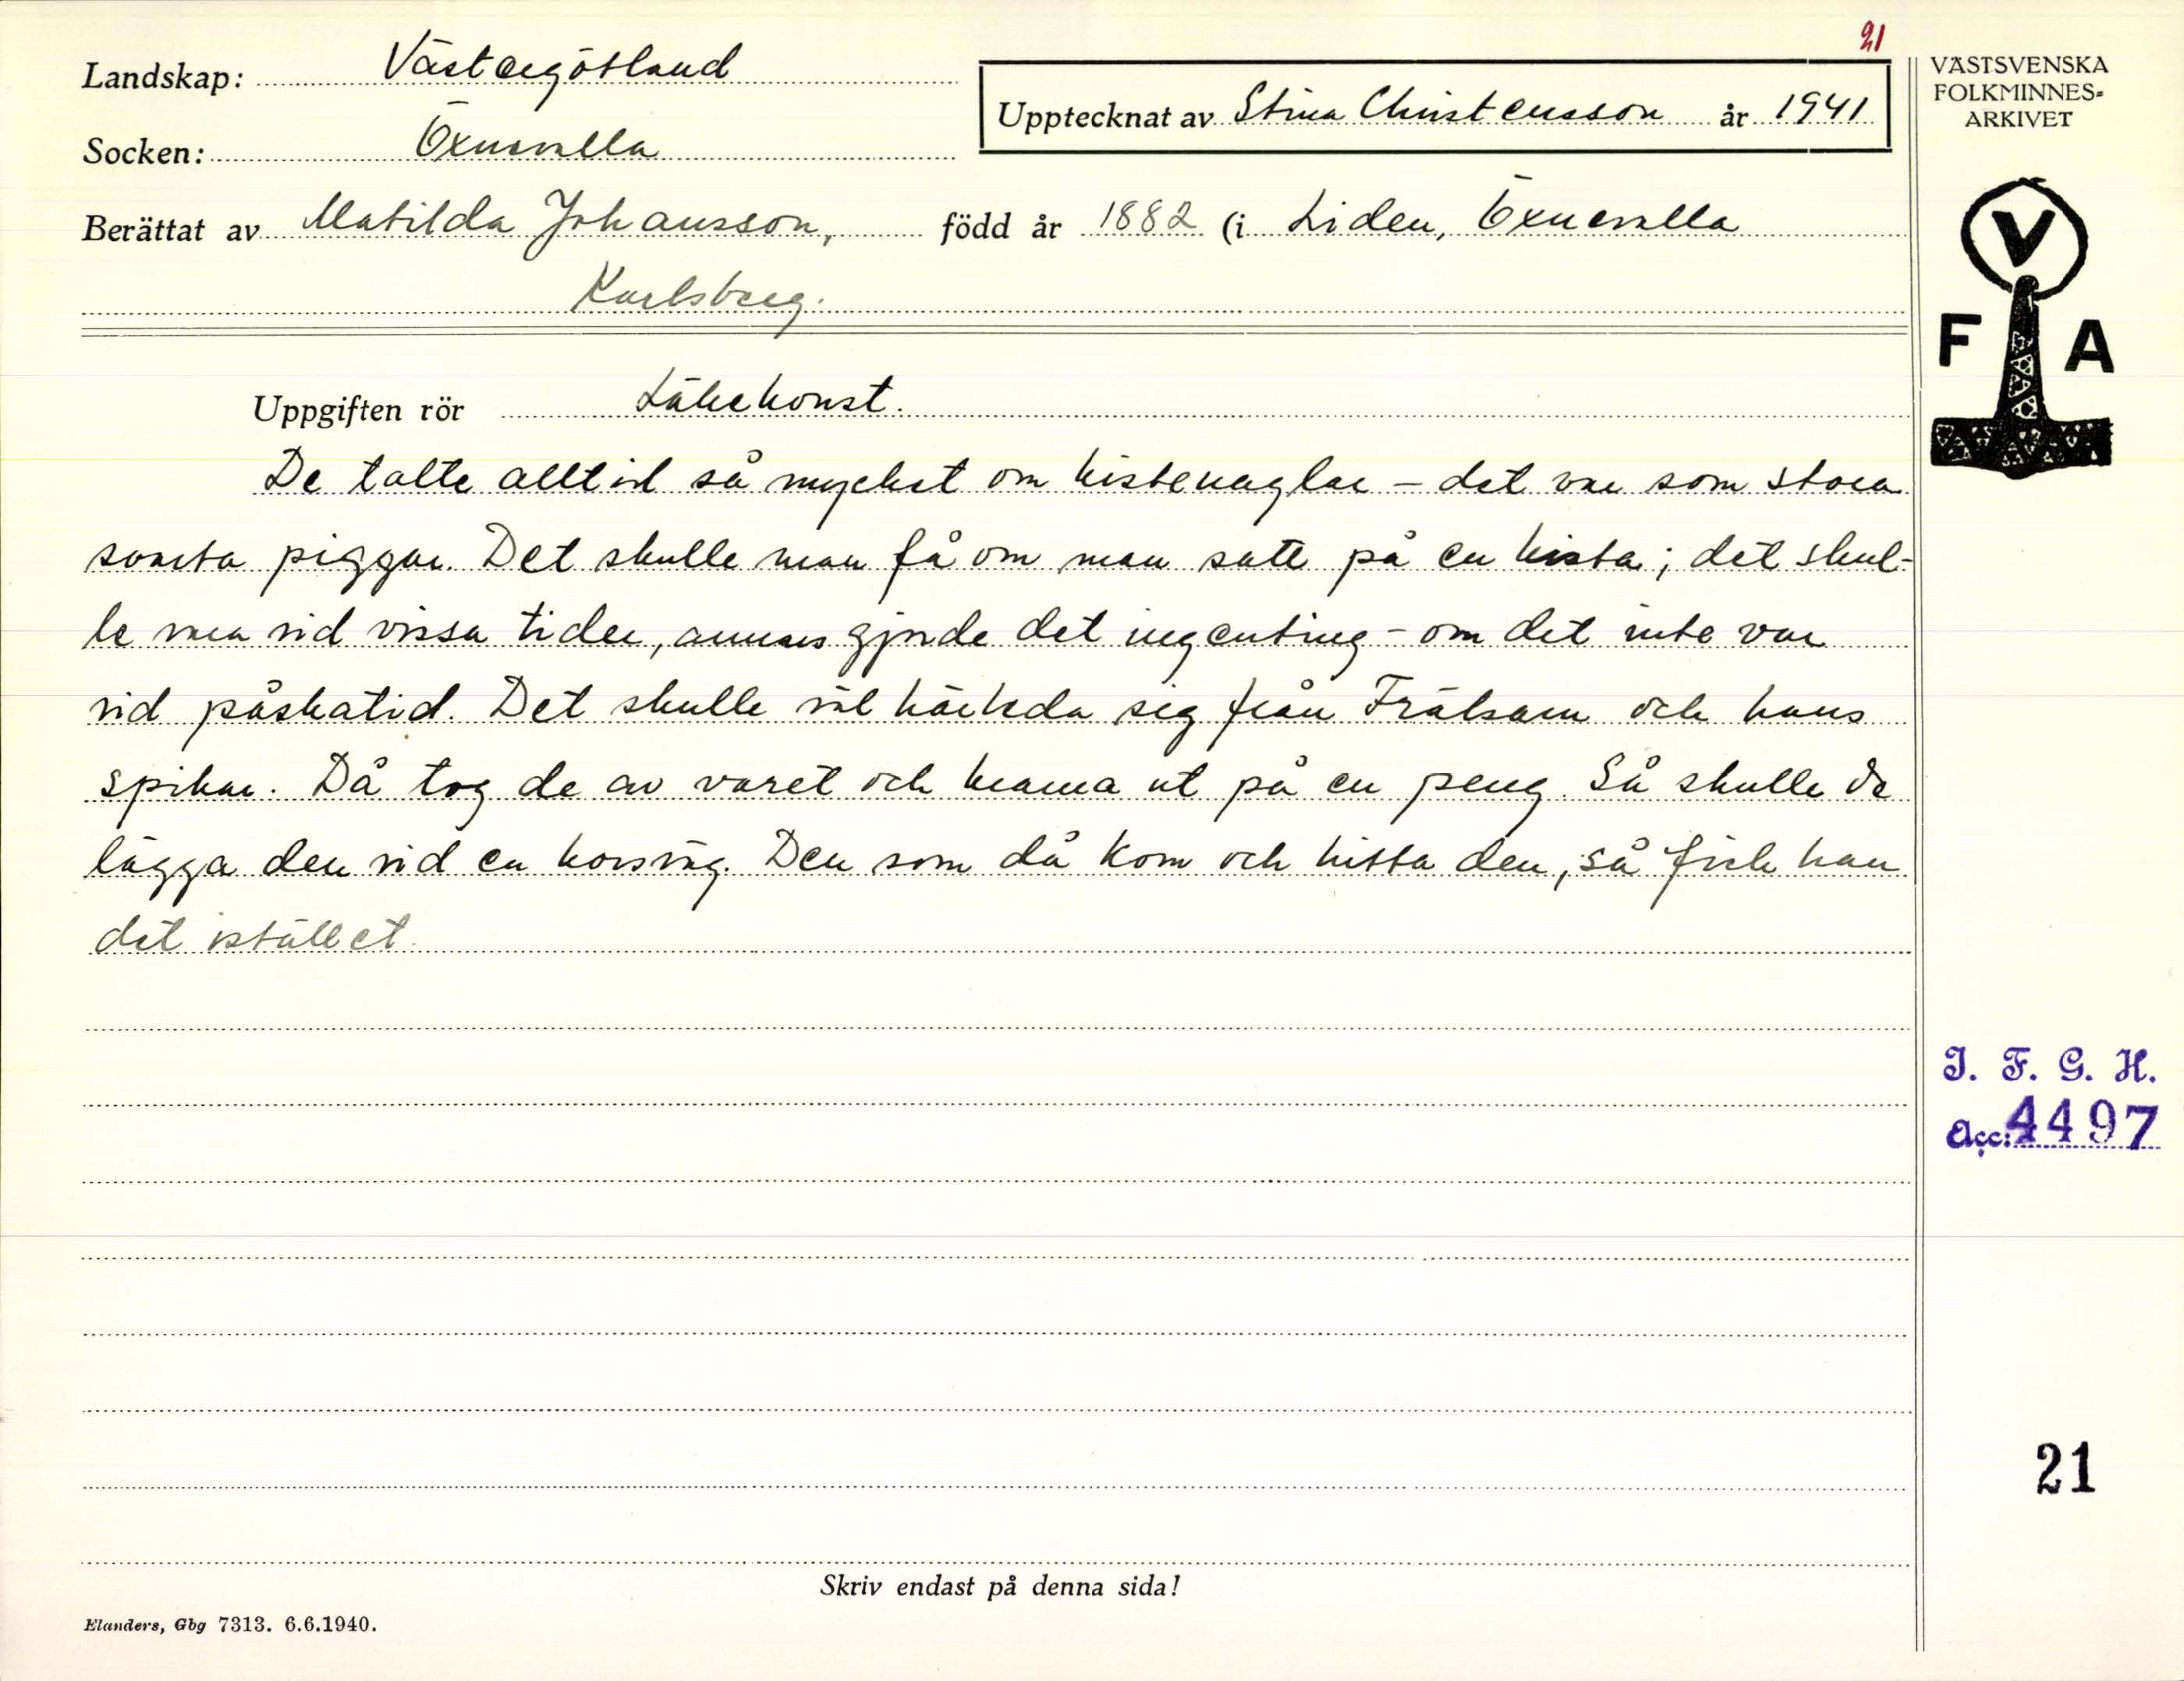 21
Landskap: Västergötland
Upptecknat av Stina Christensson år 1941
VÄSTSVENSKA
FOLKMINNES=
ARKIVET
Socken: Öxnevalla
Berättat av Matilda Johansson, född år 1882 (i Liden, Öxnevalla
Karlsberg.
V
F A
Uppgiften rör Läkekonst.
De talte alltid så mycket om kistenaglar – det var som stora
svarta piggar. Det skulle man få om man satt på en kista; det skul-
le vara vid vissa tider, annars gjorde det ingenting – om det inte var
vid påskatid. Det skulle väl härleda sig från Frälsarn och hans
spikar. Då tog de av varet och krama ut på en peng. Så skulle de
lägga den vid en korsväg. Den som då kom och hitta den, så fick han
det istället.
I. F. G. H.
Acc: 4497
21
Skriv endast på denna sida!
Elanders, Gbg 7313. 6.6.1940.